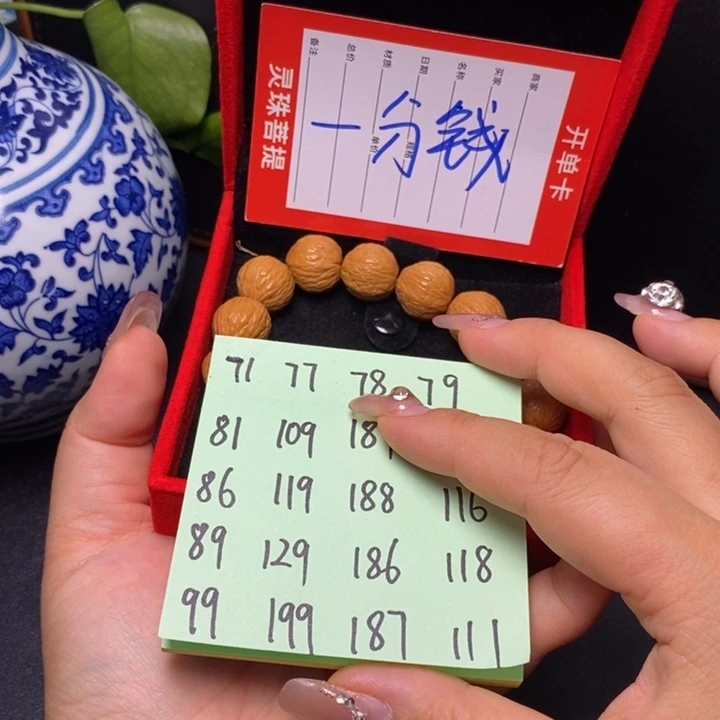 开单卡
商家
买家
名称
规格
日期
材质
单价
总价
备注
灵珠菩提
一分钱
71 77 78 79
81 109 18
86 119 188 116
89 129 186 118
99 199 187 111